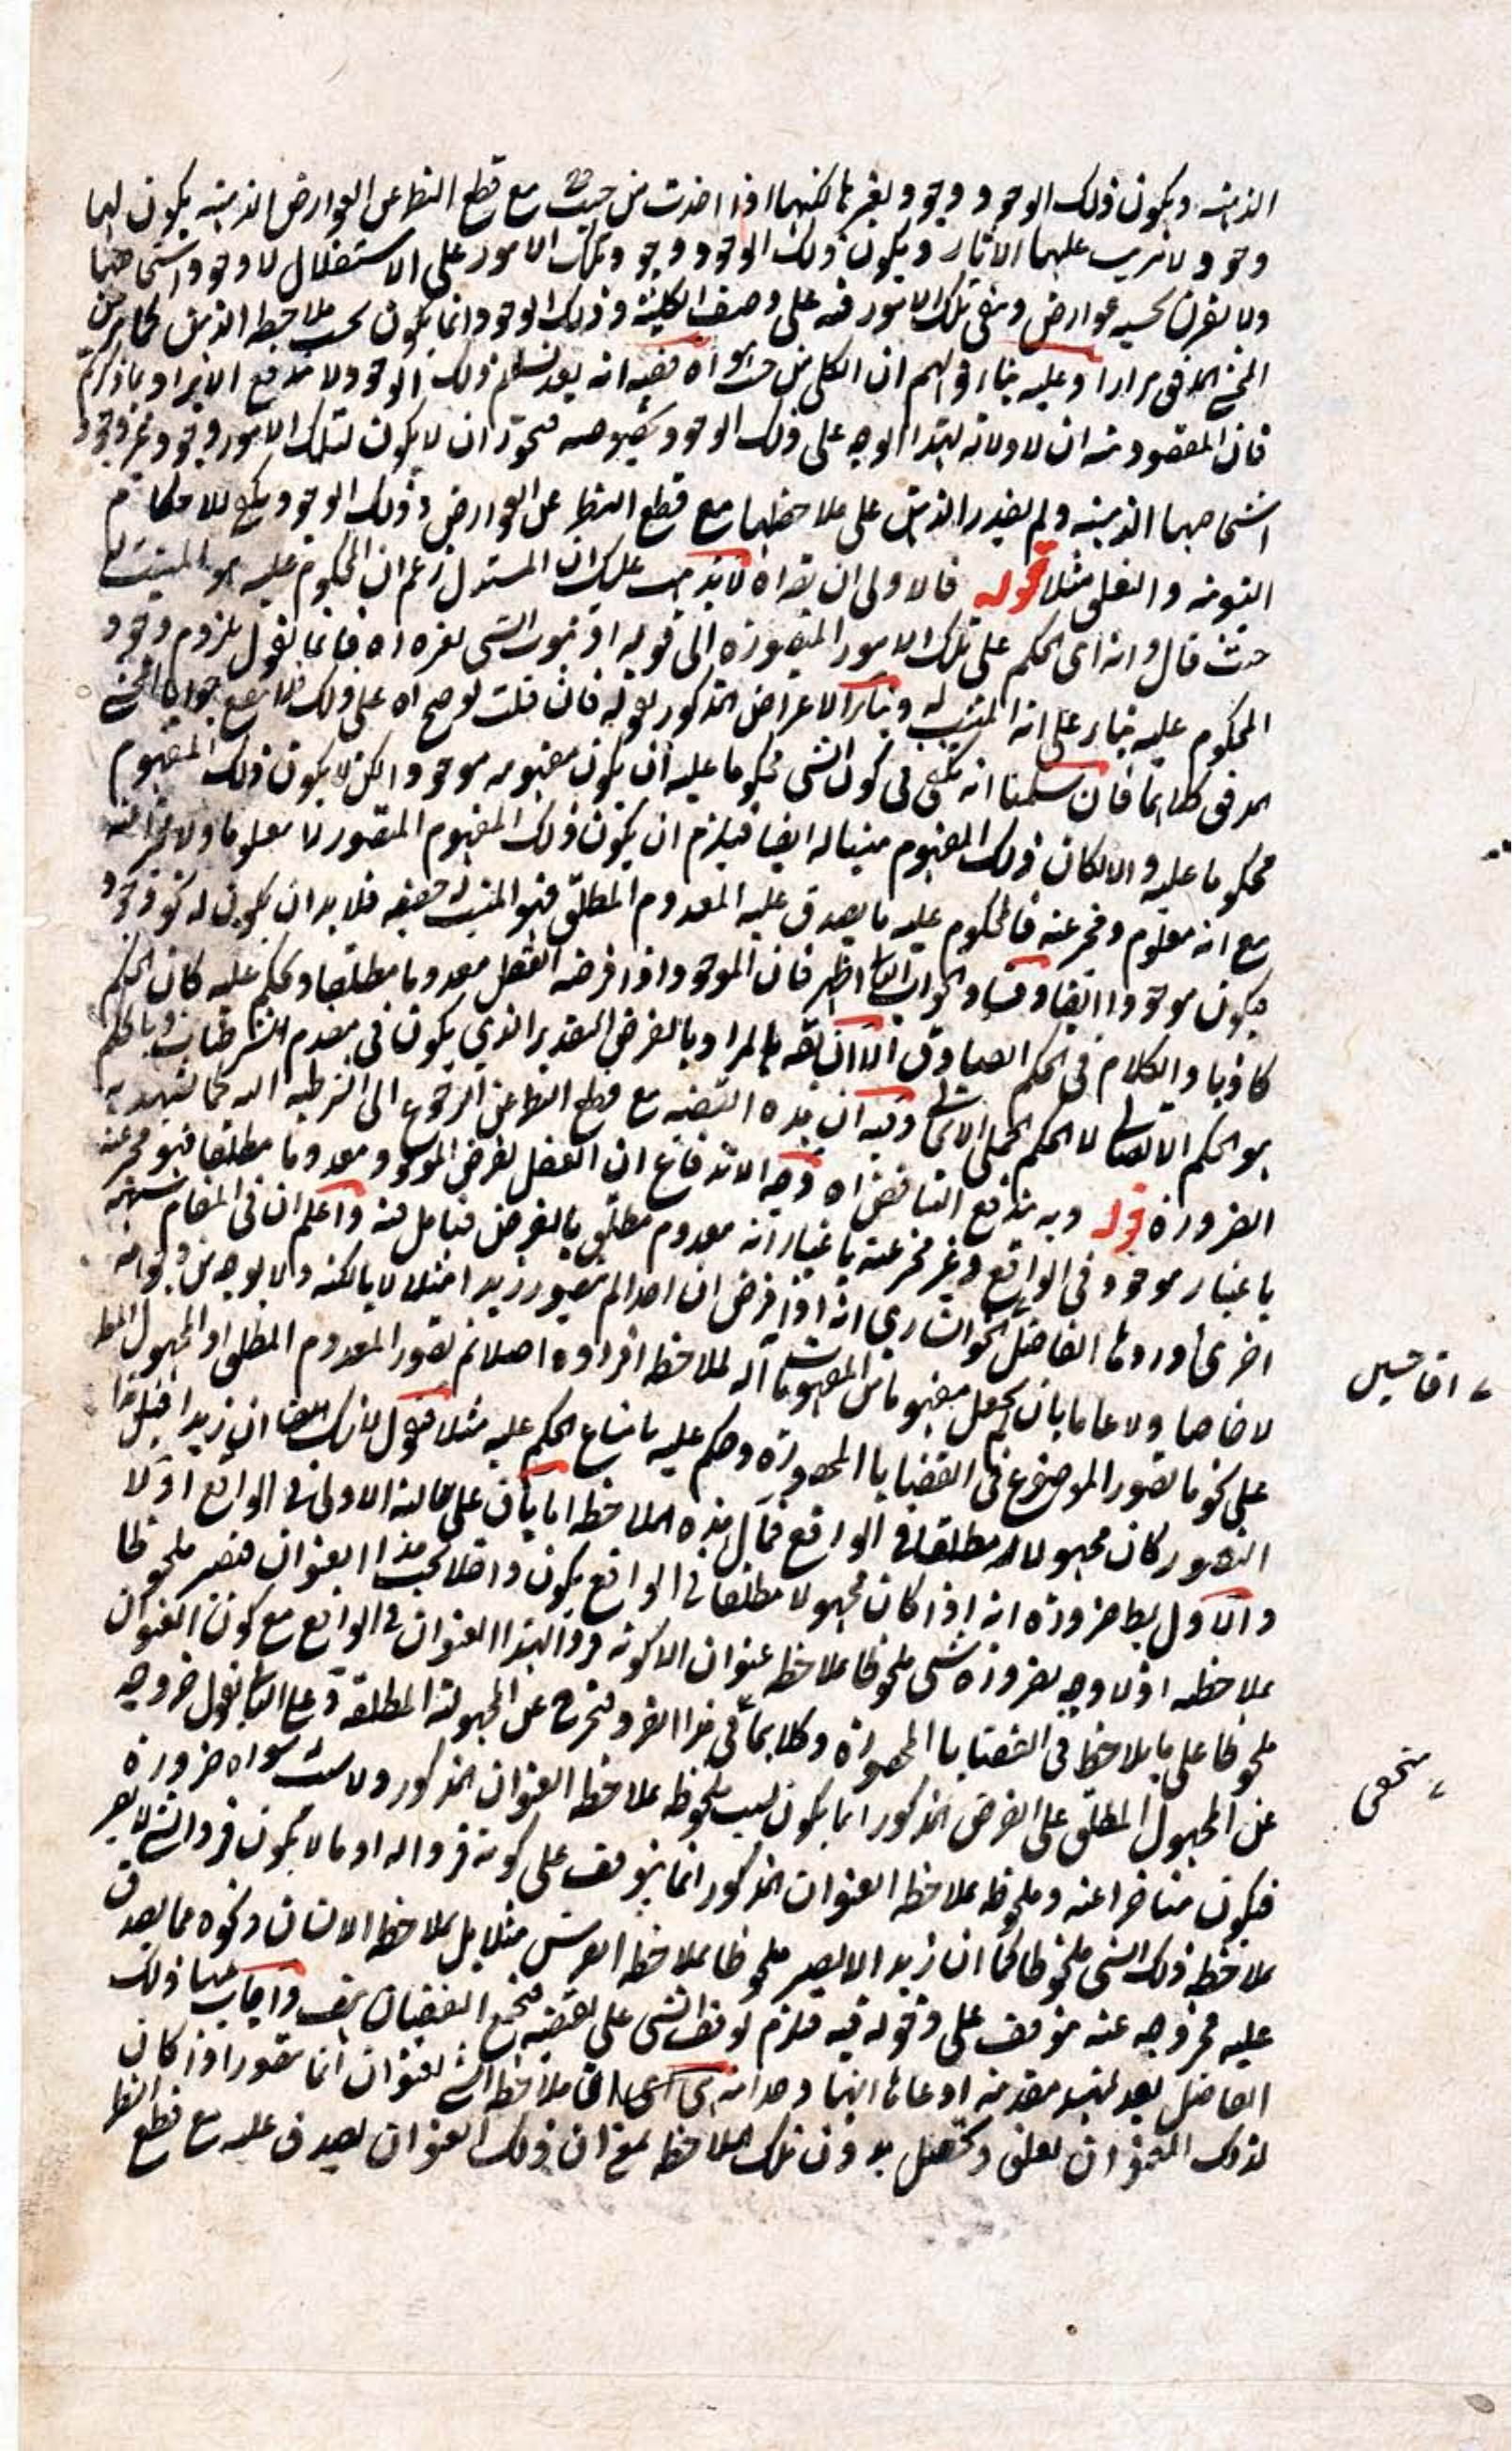 الذهنية ويكون ذلك الوجود وجود لغيرها لكنها اذا اخذت من حيث هي مع قطع النظر عن العوارض الذهنية يكون لها
وجود لا يترتب عليها الآثار ويكون ذلك الوجود وجود تلك الامور على الاستقلال لا وجود اشخاصها
ولا يقترن بحسبه عوارض وتبقى تلك الامور فيه على وصف الكلية وذلك الوجود انما يكون بحسب ملاحظة الذهن كما مر من
المحشي المدقق مرارا وعليه بناء قولهم ان الكلي من حيث هو اه ففيه انه بعد تسلم ذلك الوجود لا يندفع الايراد بما ذكرتم
فان المقصود منه ان لا دلالة لهذا الوجه على ذلك الوجود بخصوصه فيجوز ان لا يكون لتلك الامور وجود غير وجود
اشخاصها الذهنية ولم يقدر الذهن على ملاحظتها مع قطع النظر عن العوارض وذلك الوجود يكفي للاحكام
الثبوتية والتعلق مثلا قوله فالاولى ان يقراه لا يذهب عليك ان المستدل زعم ان المحكوم عليه هو المثبت له
حيث قال وانه اي الحكم على تلك الامور المتصورة الى قوله اذ ثبوت الشئ لغيره اه فانما نقول بلزوم وجود
المحكوم عليه بناء على انه المثبت له وبناء الاعتراض المذكور بقوله فان قلت لو صح اه على ذلك فلا يقع جوابا المحشي
المدقق كلاهما فان سلمنا انه يكفي في كون الشئ محكوما عليه ان يكون مفهومه موجودا لكن لا يكون ذلك المفهوم
محكوما عليه والا لكان ذلك المفهوم مثبتا له ايضا فيلزم ان يكون ذلك المفهوم المتصور لا معلوما ولا مخبرا عنه
مع انه معلوم ومخبر عنه فالمحكوم عليه ما يصدق عليه المعدوم المطلق فهو المثبت له حقيقة فلا بد ان يكون له نحو وجود
فيكون موجودا ايضا وفساد الجواب الثاني اظهر فان الموجود اذا فرضه العقل معدوما مطلقا وحكم عليه كان الحكم
كاذبا والكلام في الحكم الصادق الا ان يقه المراد بالفرض التقدير الذي يكون في مقدم الشرطيات وبالحكم
هو الحكم الاتصالي لا الحكم الحملي وفيه ان هذه القضية مع قطع النظر عن الرجوع الى الشرطية كما تشهد به
الضرورة قوله وبه يندفع التناقض اه وجه الاندفاع ان العقل يفرض الموجود معدوما مطلقا فهو مخبر عنه
باعتبار موجود في الواقع وغير مخبر عنه باعتبار انه معدوم مطلق بالفرض فتأمل فيه واعلم ان في المقام شبهة
اخرى اوردها الفاضل الخوانساري انه اذا فرض ان احدا لم يتصور زيدا مثلا لا بالكنه ولا بوجه من وجوهه
لا خاصا ولا عاما بان يجعل مفهوما من المفهومات آلة لملاحظة افراده اصلا ثم تصور المعدوم المطلق او المجهول المطلق
على نحو ما تصور الموضوع في القضايا المحصورة وحكم عليه بامتناع الحكم عليه مثلا فنقول لا شك ان زيدا قبل هذا
التصور كان مجهولا مطلقا في الواقع فحال هذه الملاحظة اما باق على حالته الاولى في الواقع اولا
والاول بط ضرورة انه اذا كان مجهولا مطلقا في الواقع يكون داخلا تحت هذا العنوان فيصير ملحوظا
بملاحظته اذ لا وجه لضرورة شئ ملحوظا بملاحظة عنوان الا كونه فردا لهذا العنوان في الواقع مع كون العنوان
ملحوظا على ما يلاحظ في القضايا المحصورة وكلاهما في هذا الفرد فيخرج عن المجهولية المطلقة وعلى الثاني نقول خروجه
عن المجهول المطلق على الفرض المذكور انما يكون بسبب ملحوظيته بملاحظة العنوان المذكور ولا سبب سواه ضرورة
فيكون متأخرا عنه وملحوظية بملاحظة العنوان المذكور انما يتوقف على كونه فردا له اذ ما لا يكون فردا لشئ لا يصير
بملاحظة ذلك الشئ ملحوظا كما ان زيدا لا يصير ملحوظا بملاحظة الفرس مثلا بل بملاحظة الانسان ونحوه مما يصدق
عليه فخروجه عنه موقوف على دخوله فيه فيلزم توقف الشئ على نقيضه فيجتمع النقيضان هف واجاب عنها ذلك
الفاضل بعد تمهيد مقدمة ادعى انها وجدانية هي ان ملاحظة الشئ بعنوان انما يتصور اذا كان
لذلك العنوان تعلق وتحصل بدون تلك الملاحظة بمعنى ان ذلك العنوان يصدق عليه مع قطع النظر
آقا حسين